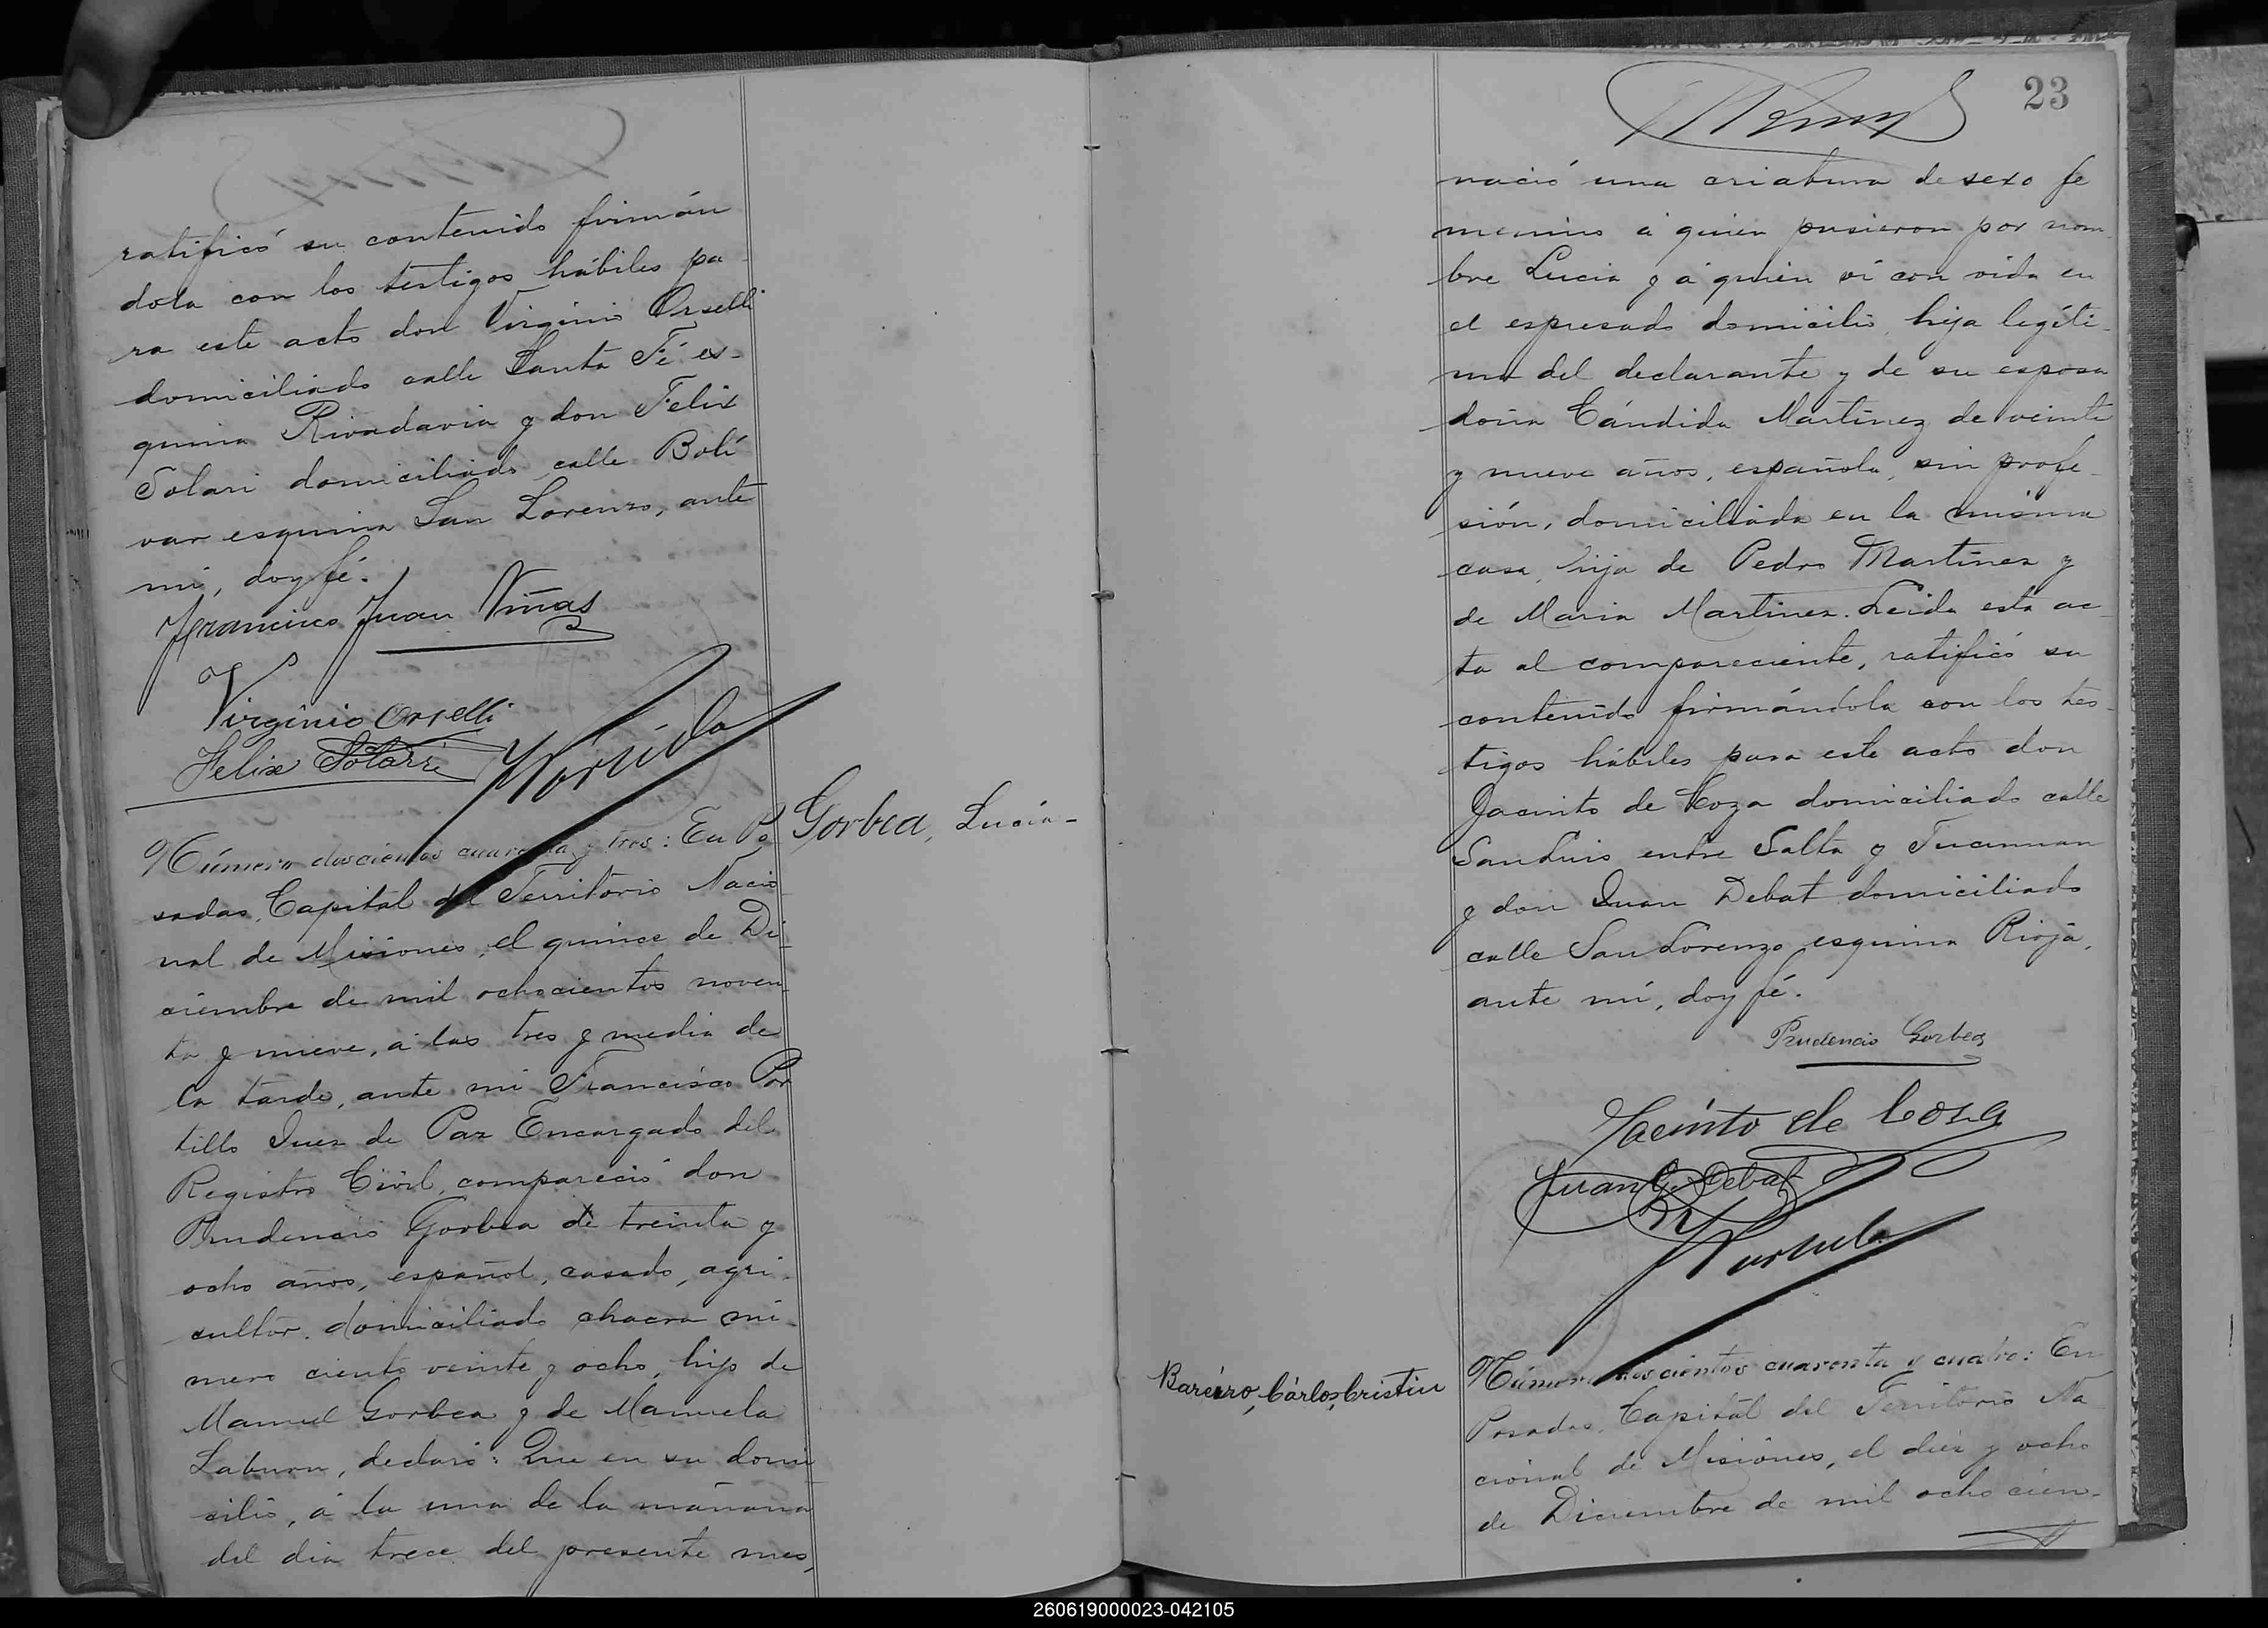 ratificó su contenido firmán
dola con los testigos hábiles pa
ra este acto don Virginio Orselli
domiciliado calle Santa Fé es-
quina Rivadavia y don Felix
Solari domiciliado calle Bolí
var esquina San Lorenzo, ante
mí, doy fé.
Francisco Juan Viñas
Virginio Orselli
Felix Solari
Gorbea, Lucía-
Número doscientos cuarenta y tres: En Po
sadas, Capital del Territorio Nacio
nal de Misiones, el quince de Di
ciembre de mil ochocientos noven
ta y nueve, á las tres y media de
la tarde, ante mi Francisco Por
tillo Juez de Paz Encargado del
Registro Civil, compareció don
Prudencio Gorbea de treinta y
ocho años, español, casado, agri-
cultor, domiciliado chacra nú-
mero ciento veinte y ocho, hijo de
Manuel Gorbea y de Manuela
declaró: Que en su domi
cilio, á la una de la mañana
del dia trece del presente mes,
23
nació una criatura de sexo fe
menino á quien pusieron por nom-
bre Lucia y á quién ví con vida en
el espresado domicilio, hija legíti-
ma del declarante y de su esposa
doña Cándida Martinez de veinte
y nueve años, española, sin profe-
sión, domiciliada en la misma
casa, hija de Pedro Martinez y
de Maria Martinez. Leida esta ac-
ta al compareciente, ratificó su
contenido firmándola con los tes-
tigos hábiles para este acto don
Jacinto de Coza domiciliado calle
San Luis entre Salta y Tucuman
y don Juan Debat domiciliado
calle San Lorenzo esquina Rioja,
ante mí, doy fé.
Prudencio Gorbea
Jacinto de Coza
Juan Debat
Bareiro, Cárlos Cristin
Número doscientos cuarenta y cuatro: En
Posadas, Capital del Territorio Na
cional de Misiones, el diez y ocho
de Diciembre de mil ochocien-
260619000023-042105